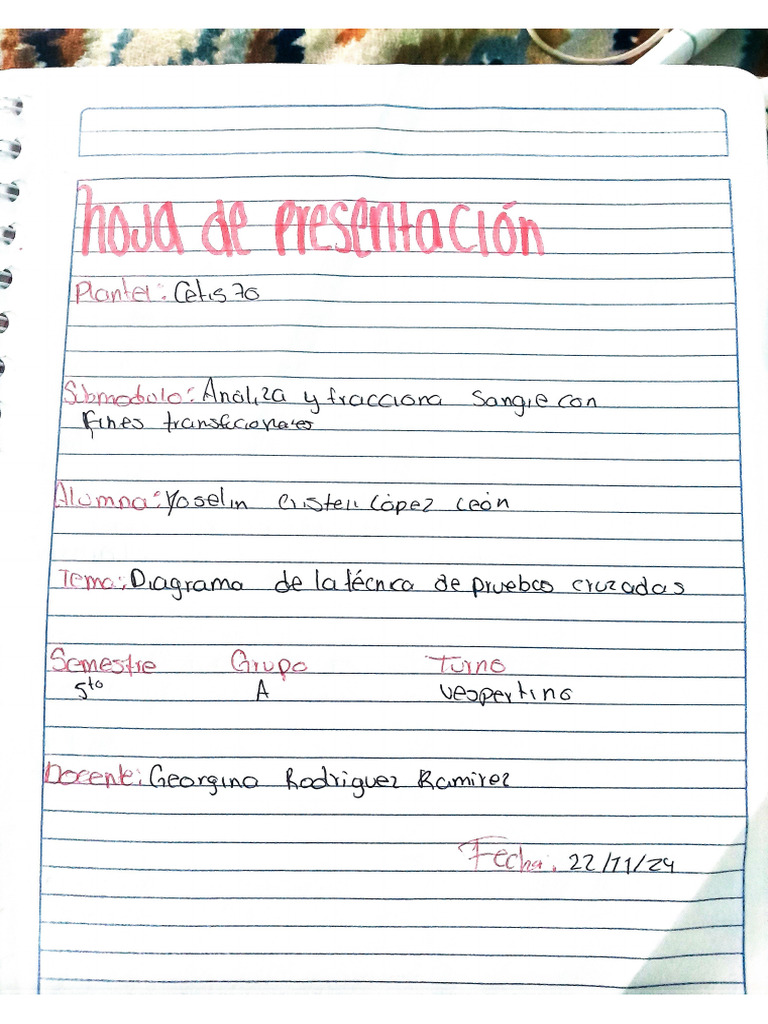 hoja de presentación
Plantel: Cetis 70
Submodulo: Analiza y fracciona sangre con
fines transfucionales
Alumna: Yoselin Cristell López León
Tema: Diagrama de la técnica de pruebas cruzadas
Semestre Grupo Turno
5to A Vespertino
Docente: Georgina Rodriguez Ramirez
Fecha: 22/11/24